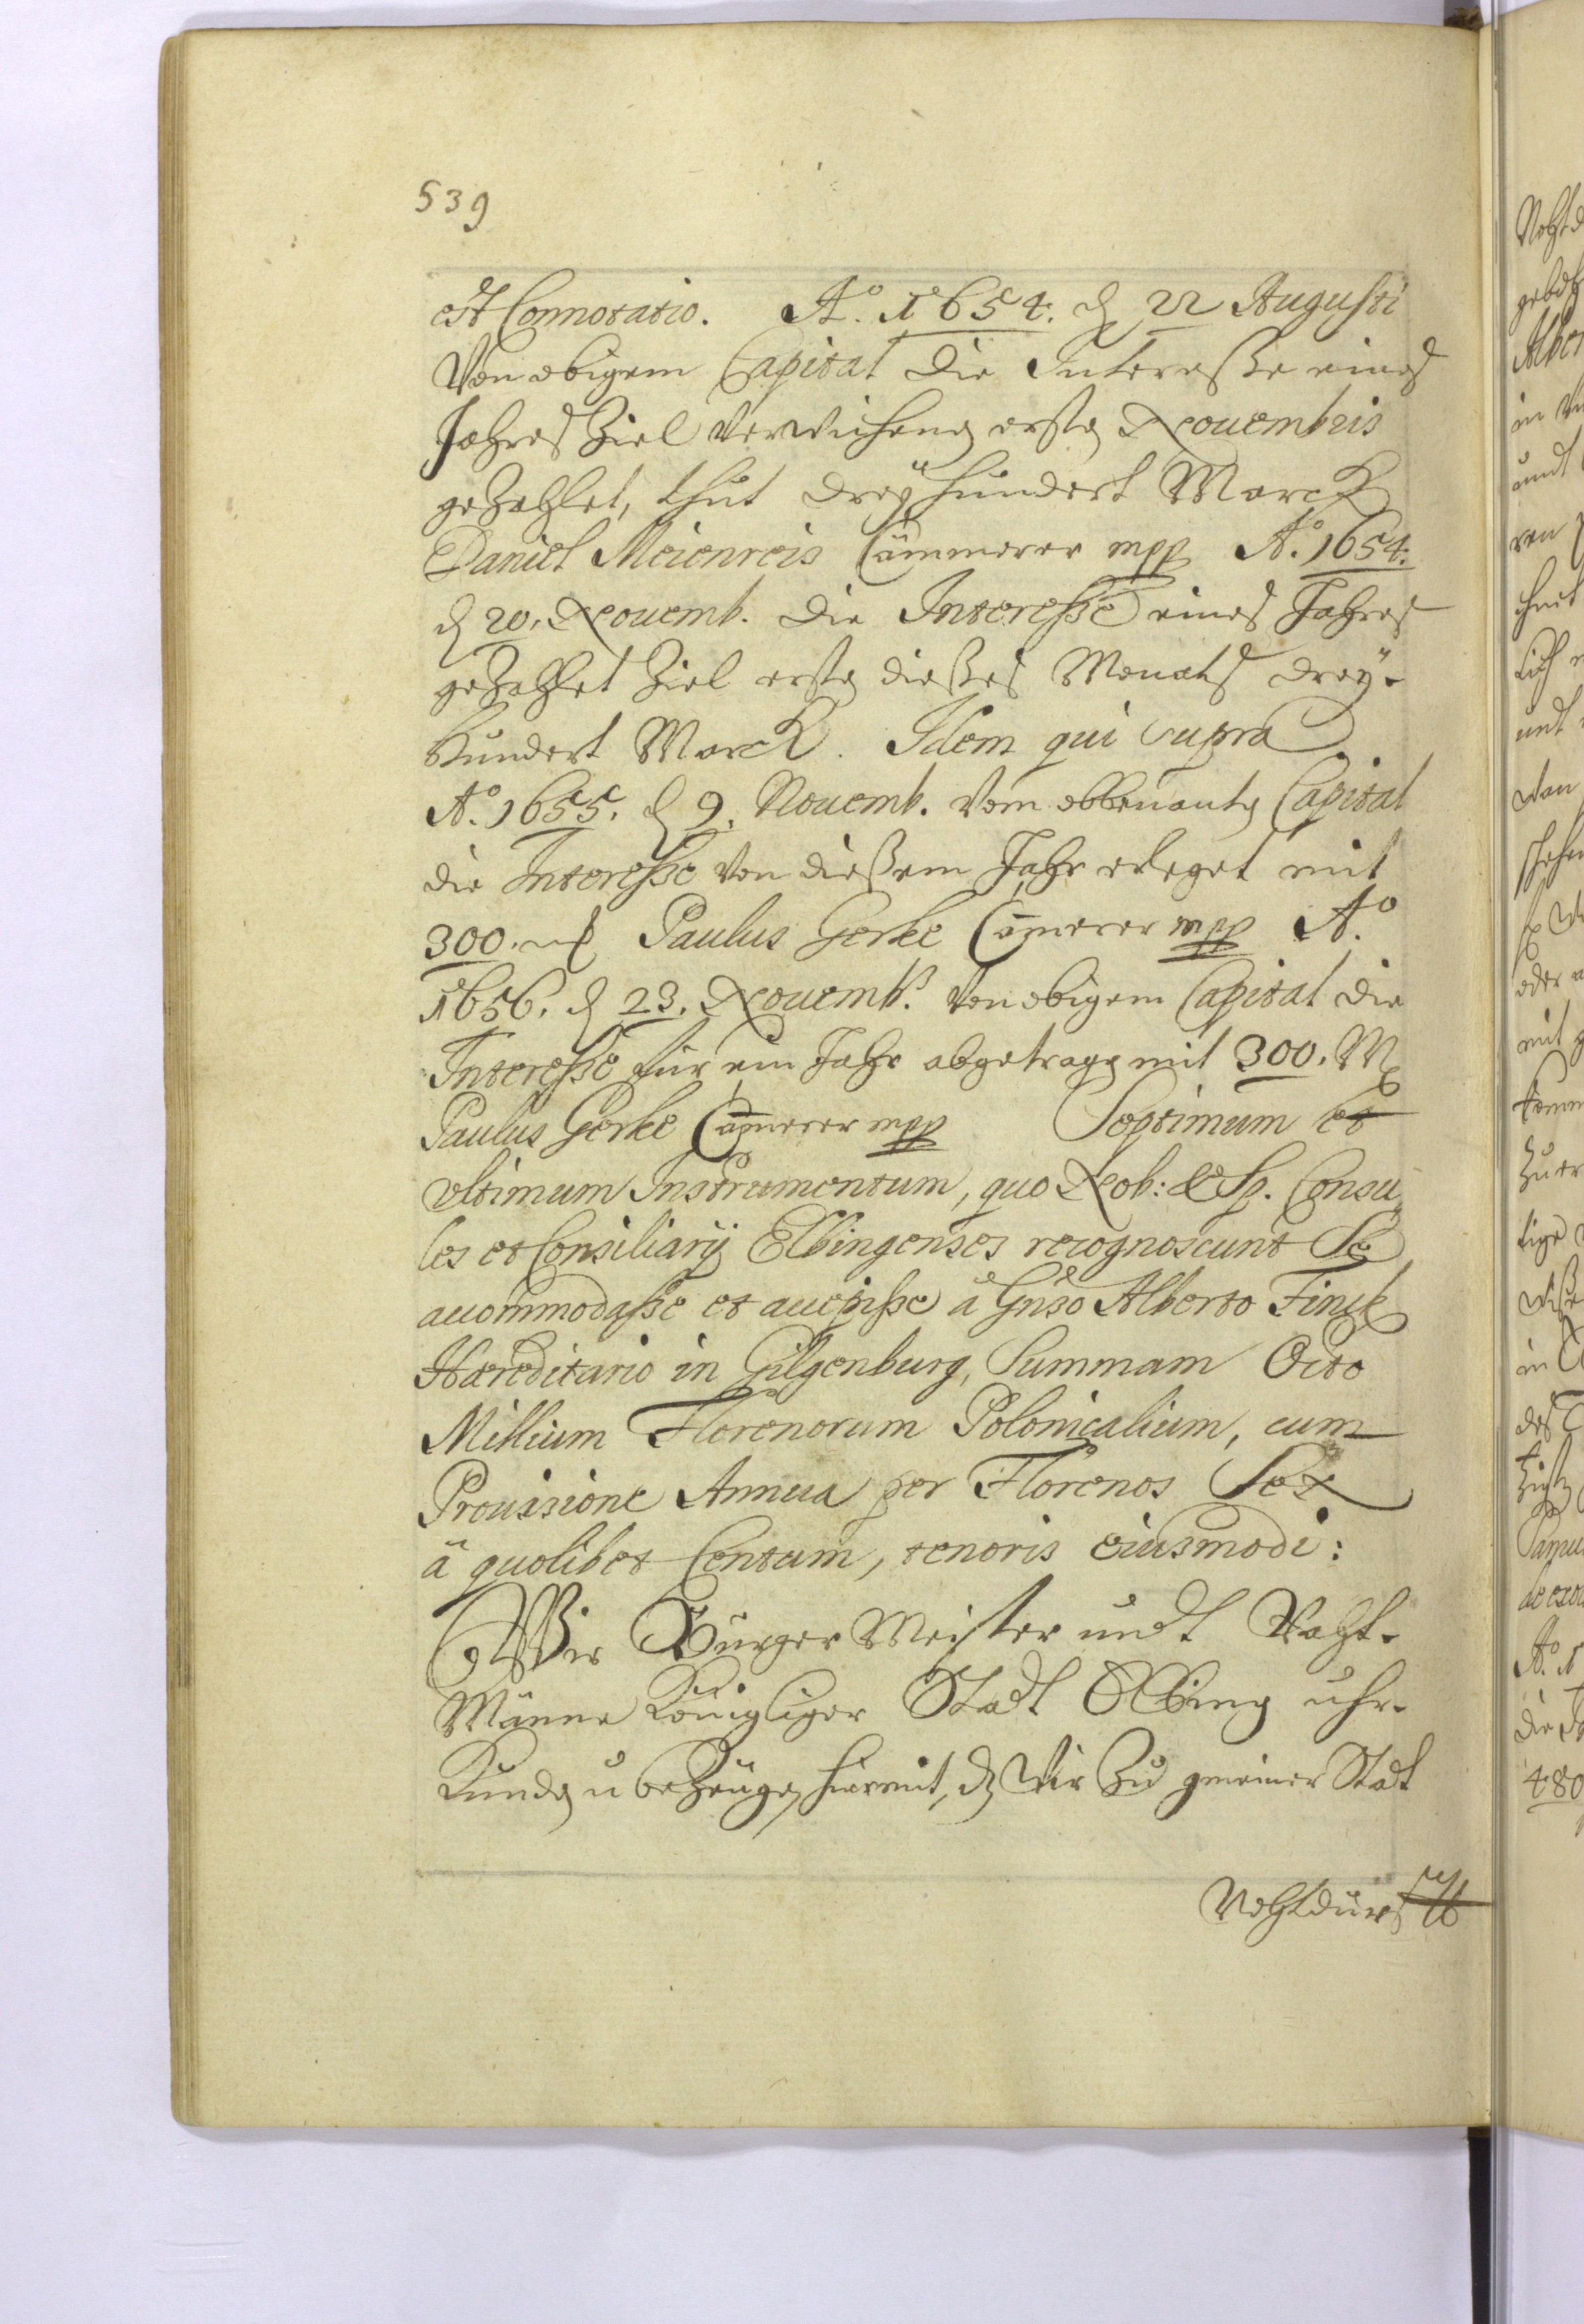 539
est Connotatio. Aº. 1654. d 22 Augusti
Von obigem Capital die Interesse eines
Jahres Ziel verwichenen ersten Nouembris
gezahlet, thut dreÿhundert Marck
Daniel Meienreis Cämmerer mpp Aº. 1654.
d 20. Nouemb. die Interesse eines Jahres
gezahlet Ziel ersten dießes Monats dreÿ-
hundert Marck. Idem qui supra
Aº. 1655. d 9. Nouemb. Vom obbenanten Capital
die Interesse von dießem Jahr erleget mit
300. M Paulus Gerke Cam̄erer mpp Aº.
1656. d 23. Nouemb. Von obigem Capital die
Interesse für ein Jahr abgetragen mit 300. M
Paulus Gerke Cam̄erer mpp Septimum et
ultimum Instrumentum, quo Nob: & Sp. Consu,,
les et Consiliarij Elbingenses recognoscunt Se
accommodasse et accepisse a Gn̄so Alberto Finck
Hæreditario in Gilgenburg, Summam Octo
Millium Florenorum Polonicalium, cum
Prouisione Annua per Florenos Sex
â quolibet Centum, tenoris eiusmodi:
Wir BürgerMeister undt Raht-
Männe Königliger Stadt Elbing uhr-
Kunden u bezeugen hiermit, dz Wir Zu gemeiner Stadt